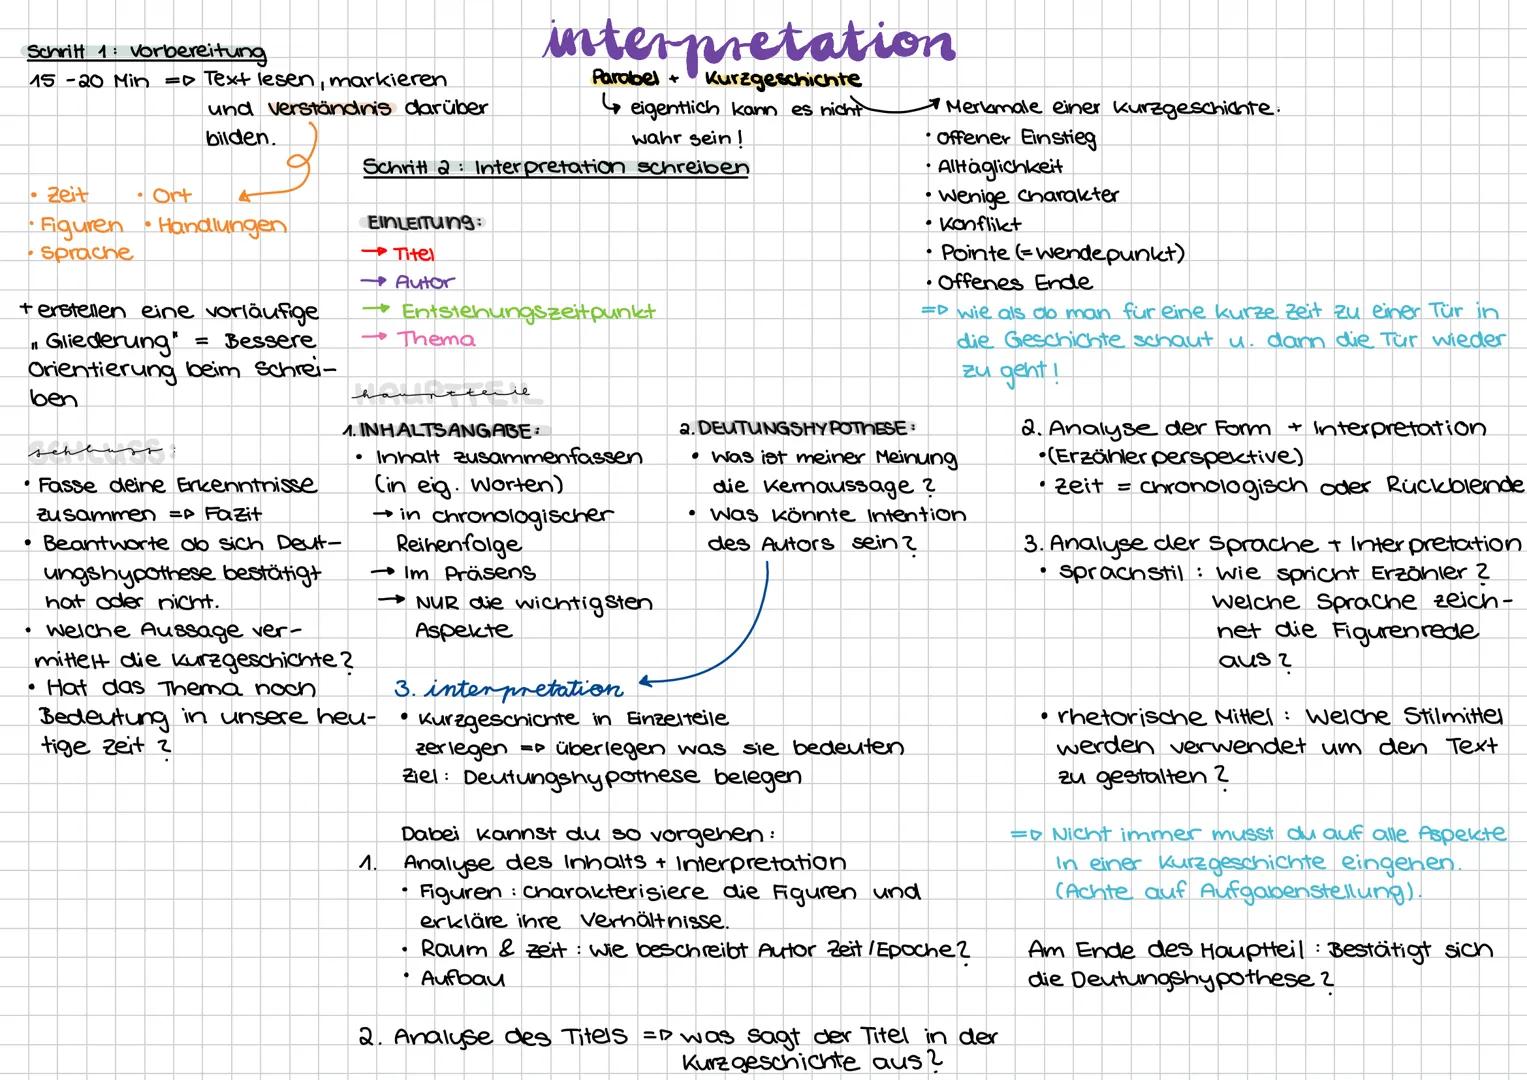 interpretation
Parabel + Kurzgeschichte
↳ eigentlich kann es nicht
wahr sein!
Schritt 1: Vorbereitung
15 -20 Min => Text lesen, markieren
und Verständnis darüber
bilden.
• Zeit • Ort
• Figuren • Handlungen
• Sprache
+ erstellen eine vorläufige
„Gliederung" = Bessere
Orientierung beim Schrei-
ben
Schritt 2: Interpretation schreiben
EINLEITUNG:
→ Titel
→ Autor
→ Entstehungszeitpunkt
→ Thema
Merkmale einer Kurzgeschichte:
• Offener Einstieg
• Alltäglichkeit
• Wenige Charakter
• Konflikt
• Pointe (=Wendepunkt)
• Offenes Ende
=> wie als ob man für eine kurze Zeit zu einer Tür in
die Geschichte schaut u. dann die Tür wieder
zu geht!
HAUPTTEIL
hauptteil
1. INHALTSANGABE:
• Inhalt zusammenfassen
(in eig. Worten)
→ in chronologischer
Reihenfolge
→ Im Präsens
→ NUR die wichtigsten
Aspekte
2. DEUTUNGSHYPOTHESE:
• Was ist meiner Meinung
die Kernaussage?
• Was könnte Intention
des Autors sein?
3. interpretation
• Kurzgeschichte in Einzelteile
zerlegen => überlegen was sie bedeuten
Ziel: Deutungshypothese belegen
Dabei kannst du so vorgehen:
1. Analyse des Inhalts + Interpretation
• Figuren: Charakterisiere die Figuren und
erkläre ihre Verhältnisse.
• Raum & Zeit: Wie beschreibt Autor Zeit/Epoche?
• Aufbau
2. Analyse des Titels => was sagt der Titel in der
Kurzgeschichte aus?
2. Analyse der Form + Interpretation
• (Erzählerperspektive)
• Zeit = chronologisch oder Rückblende
3. Analyse der Sprache + Interpretation
• Sprachstil: Wie spricht Erzähler?
Welche Sprache zeich-
net die Figurenrede
aus?
• rhetorische Mittel: Welche Stilmittel
werden verwendet um den Text
zu gestalten?
=> Nicht immer musst du auf alle Aspekte
In einer Kurzgeschichte eingehen.
(Achte auf Aufgabenstellung).
Am Ende des Hauptteil: Bestätigt sich
die Deutungshypothese?
SCHLUSS:
schluss:
• Fasse deine Erkenntnisse
zusammen => Fazit
• Beantworte ob sich Deut-
ungshypothese bestätigt
hat oder nicht.
• Welche Aussage ver-
mittelt die Kurzgeschichte?
• Hat das Thema noch
Bedeutung in unsere heu-
tige Zeit?